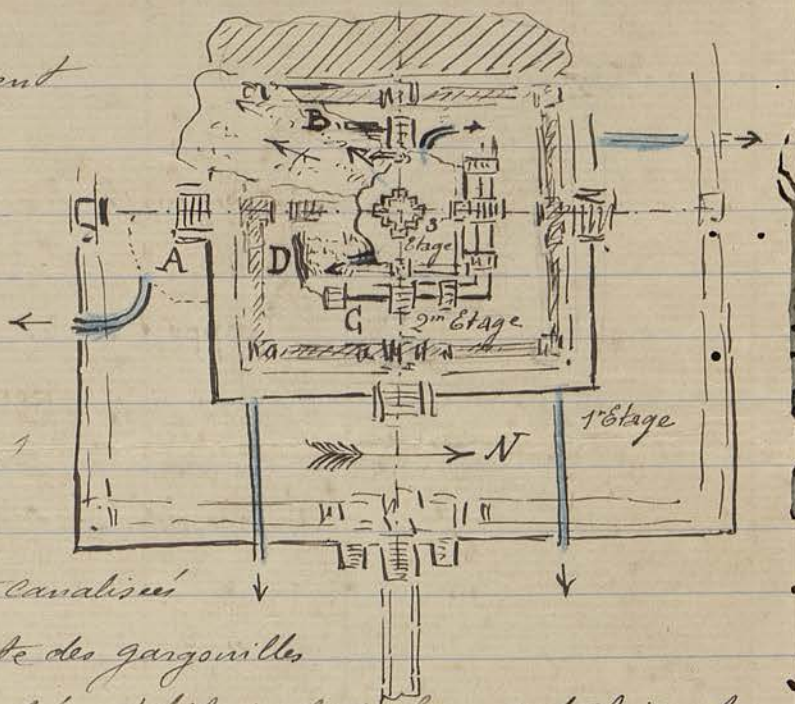 ent
B
A
3
Etage
D
C
2m Etage
1r Etage
N
1
canalisées
te des gargouilles